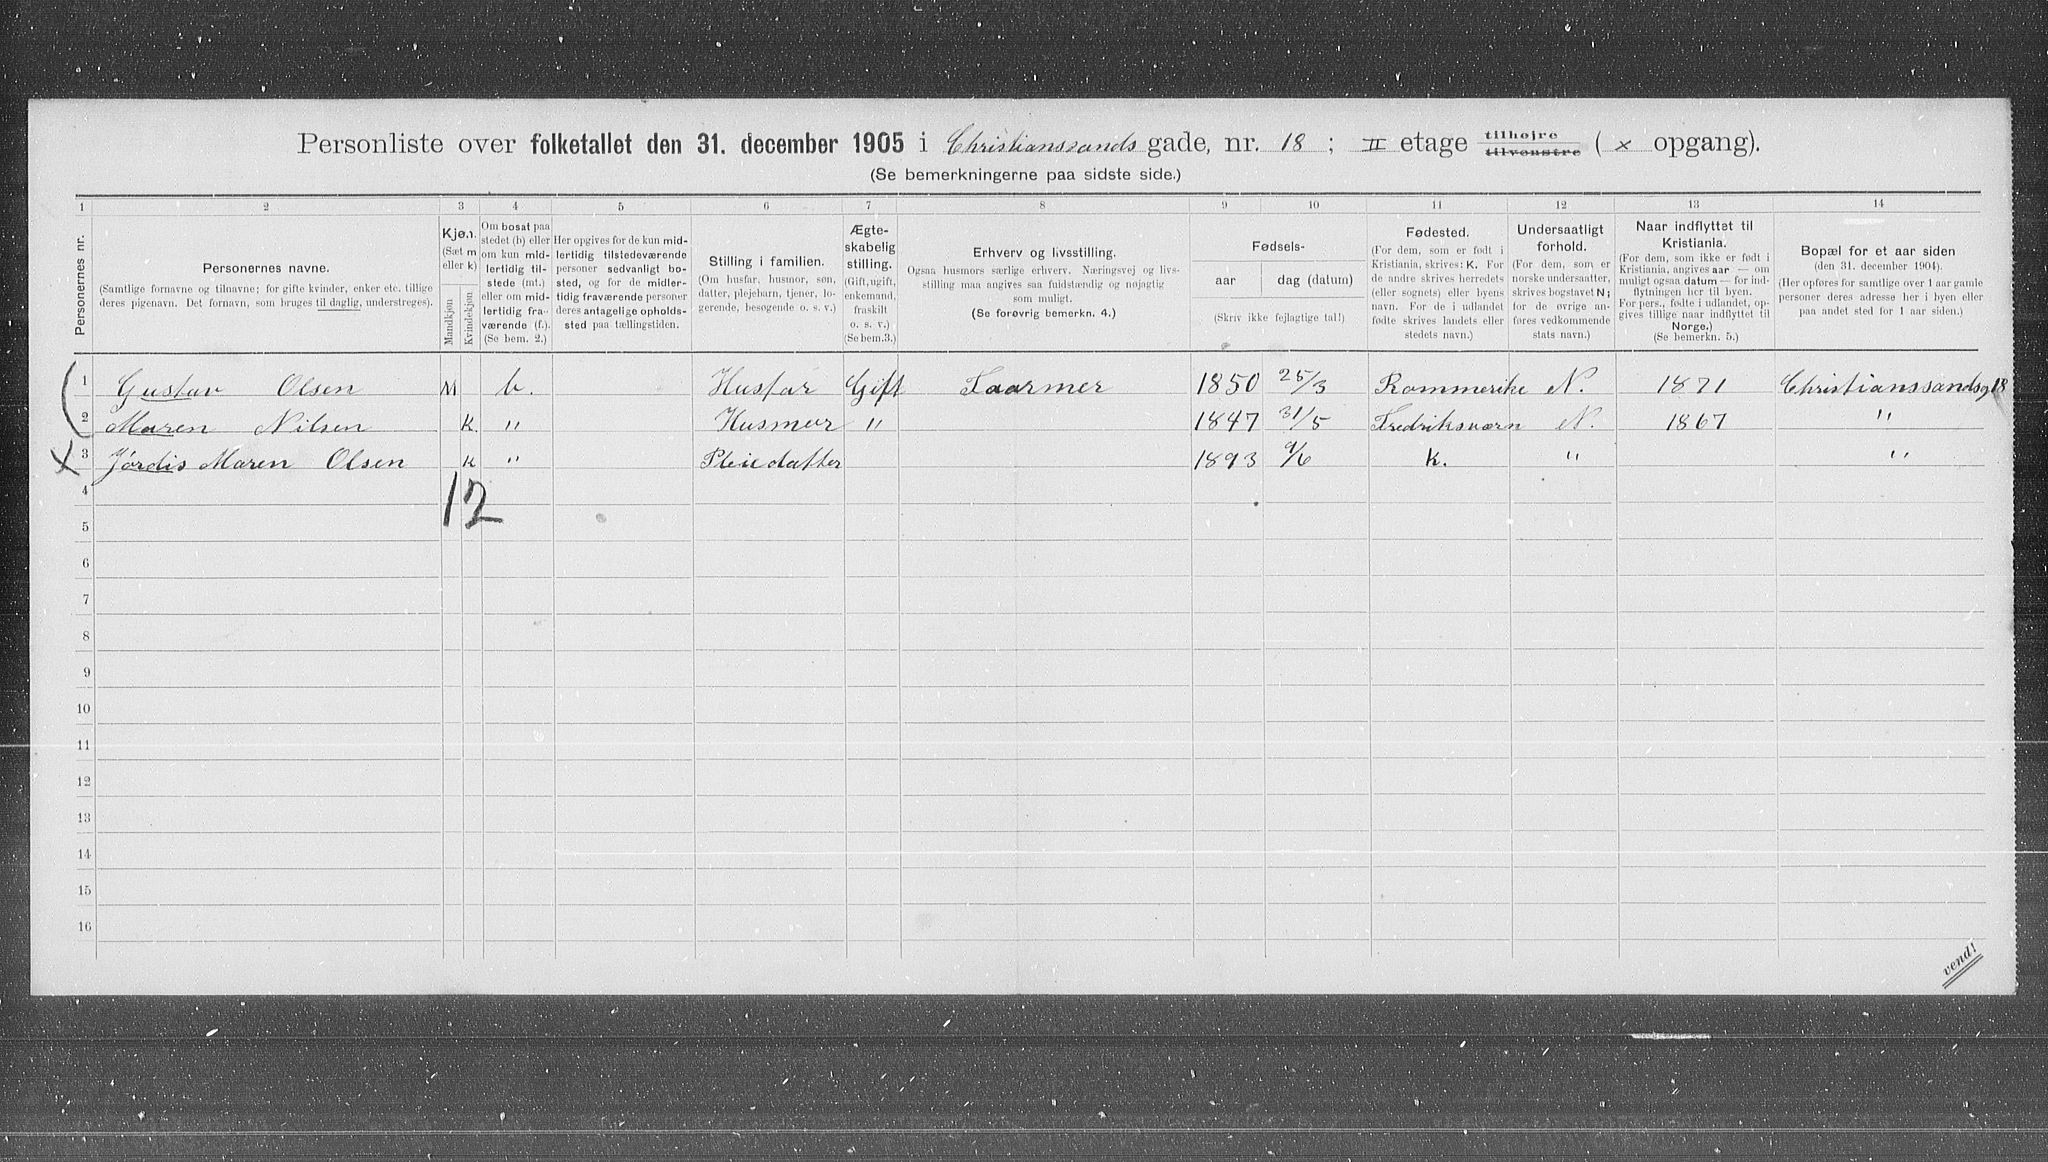 Personliste over folketallet den 31. december 1905 i Christianssands gade, nr. 18 ; II etage tilhøjre tilvenstre ( x opgang).
(Se bemerkningerne paa sidste side.)
1 2 3 4 5 6 7 8 9 10 11 12 13 14
Personernes nr.
Personernes navne.
(Samtlige fornavne og tilnavne; for gifte kvinder, enker etc. tillige
deres pigenavn. Det fornavn, som bruges til daglig, understreges).
Kjøn.
(Sæt m
eller k)
Mandkjøn
Kvindekjøn
Om bosat paa
stedet (b) eller
om kun mid-
lertidig til-
stede (mt.)
eller om mid-
lertidig fra-
værende (f.).
(Se bem. 2.)
Her opgives for de kun mid-
lertidig tilstedeværende
personer sedvanligt bo-
sted, og for de midler-
tidig fraværende personer
deres antagelige opholds-
sted paa tællingstiden.
Stilling i familien.
(Om husfar, husmor, søn,
datter, plejebarn, tjener, lo-
gerende, besøgende o. s. v.)
Ægte-
skabelig
stilling.
(Gift, ugift,
enkemand,
fraskilt
o. s. v.)
(Se bem. 3.)
Erhverv og livsstilling.
Ogsaa husmors særlige erhverv. Næringsvej og livs-
stilling maa angives saa fuldstændig og nøjagtig
som muligt.
(Se forøvrig bemerkn. 4.)
Fødsels-
aar dag (datum)
(Skriv ikke fejlagtige tal!)
Fødested.
(For dem, som er født i
Kristiania, skrives: K. For
de andre skrives herredets
(eller sognets) eller byens
navn. For de i udlandet
fødte skrives landets eller
stedets navn.)
Undersaatligt
forhold.
(For dem, som er
norske undersaatter,
skrives bogstavet N;
for de øvrige an-
føres vedkommende
stats navn.)
Naar indflyttet til
Kristiania.
(For dem, som ikke er født i
Kristiania, angives aar — om
muligt ogsaa datum — for ind-
flytningen her til byen.
For pers., fødte i udlandet, op-
gives tillige naar indflyttet til
Norge.)
(Se bemerkn. 5.)
Bopæl for et aar siden
(den 31. december 1904).
(Her opføres for samtlige over 1 aar gamle
personer deres adresse her i byen eller
paa andet sted for 1 aar siden.)
1 Gustav Olsen M b. Husfar Gift Laarmer 1850 25/3 Rommerike N. 1871 Christianssandsg 18
2 Maren Nilsen K. " Husmor " 1847 31/5 Fredriksværn N. 1867 "
3 Jórdis Maren Olsen K " Pleiedatter 1893 9/6 K. " "
12
4
5
6
7
8
9
10
11
12
13
14
15
16
vend!